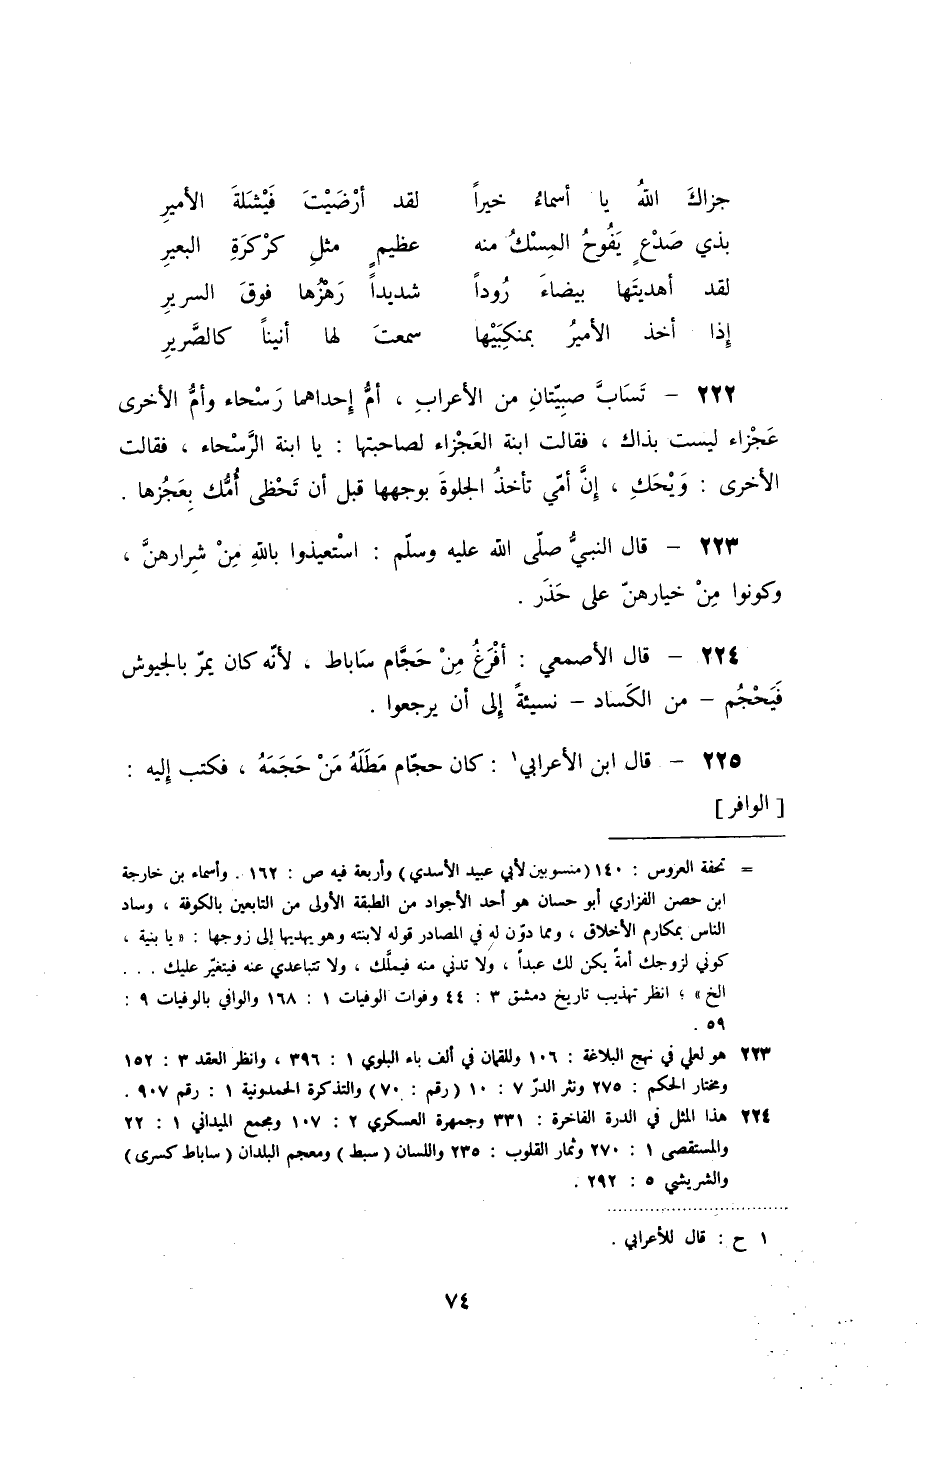 جزاكَ اللهُ يا أسماءُ خيراً لقد أرْضَيْتَ فَيْشَلَةَ الأميرِ
بذي صَدْعٍ يَفُوحُ المِسْكُ منه عظيمٍ مثلِ كرْكرَةِ البعيرِ
لقد أهديتَها بيضاءَ رُوداً شديداً رَهْزُها فوقَ السريرِ
إذا أخذ الأميرُ بمنكِبَيْها سمعتَ لها أنيناً كالصَّريرِ
٢٢٢ – تَسَابَّ صبيّتانِ من الأعرابِ ، أمُّ إحداهما رَسْحاء وأمُّ الأخرى
عَجْزاء ليست بذاك ، فقالت ابنة العَجْزاء لصاحبتها : يا ابنة الرَّسْحاء ، فقالت
الأخرى : وَيْحَكِ ، إنَّ أمّي تأخذُ الجلوةَ بوجهها قبل أن تَحْظى أُمُّك بِعَجُزها .
٢٢٣ – قال النبيُّ صلّى الله عليه وسلّم : اسْتعيذوا باللهِ مِنْ شِرارهنَّ ،
وكونوا مِنْ خيارهنّ على حَذَر .
٢٢٤ – قال الأصمعي : أفْرَغُ مِنْ حَجَّام سَاباط ، لأنّه كان يمرّ بالجيوش
فَيَحْجُم – من الكَساد – نسيئةً إلى أن يرجعوا .
٢٢٥ – قال ابن الأعرابي١ : كان حجّام مَطَلَهُ مَنْ حَجَمَهُ ، فكتب إليه :
[ الوافر ]
= تحفة العروس : ١٤٠ (منسوبين لأبي عبيد الأسدي) وأربعة فيه ص : ١٦٢ . وأسماء بن خارجة
ابن حصن الفزاري أبو حسان هو أحد الأجواد من الطبقة الأولى من التابعين بالكوفة ، وساد
الناس بمكارم الأخلاق ، ومما دوّن له في المصادر قوله لابنته وهو يهديها إلى زوجها : « يا بنية ،
كوني لزوجك أمةً يكن لك عبداً ، ولا تدني منه فيملَّك ، ولا تتباعدي عنه فيتغيّر عليك . . .
الخ » ؛ انظر تهذيب تاريخ دمشق ٣ : ٤٤ وفوات الوفيات ١ : ١٦٨ والوافي بالوفيات ٩ :
٥٩ .
٢٢٣ هو لعلي في نهج البلاغة : ١٠٦ وللقمان في ألف باء البلوي ١ : ٣٩٦ ، وانظر العقد ٣ : ١٥٢
ومختار الحكم : ٢٧٥ ونثر الدرّ ٧ : ١٠ (رقم : ٧٠) والتذكرة الحمدونية ١ : رقم ٩٠٧ .
٢٢٤ هذا المثل في الدرة الفاخرة : ٣٣١ وجمهرة العسكري ٢ : ١٠٧ ومجمع الميداني ١ : ٢٢
والمستقصى ١ : ٢٧٠ وثمار القلوب : ٢٣٥ واللسان ( سبط ) ومعجم البلدان ( ساباط كسرى )
والشريشي ٥ : ٢٩٢ .
١ ح : قال للأعرابي .
٧٤